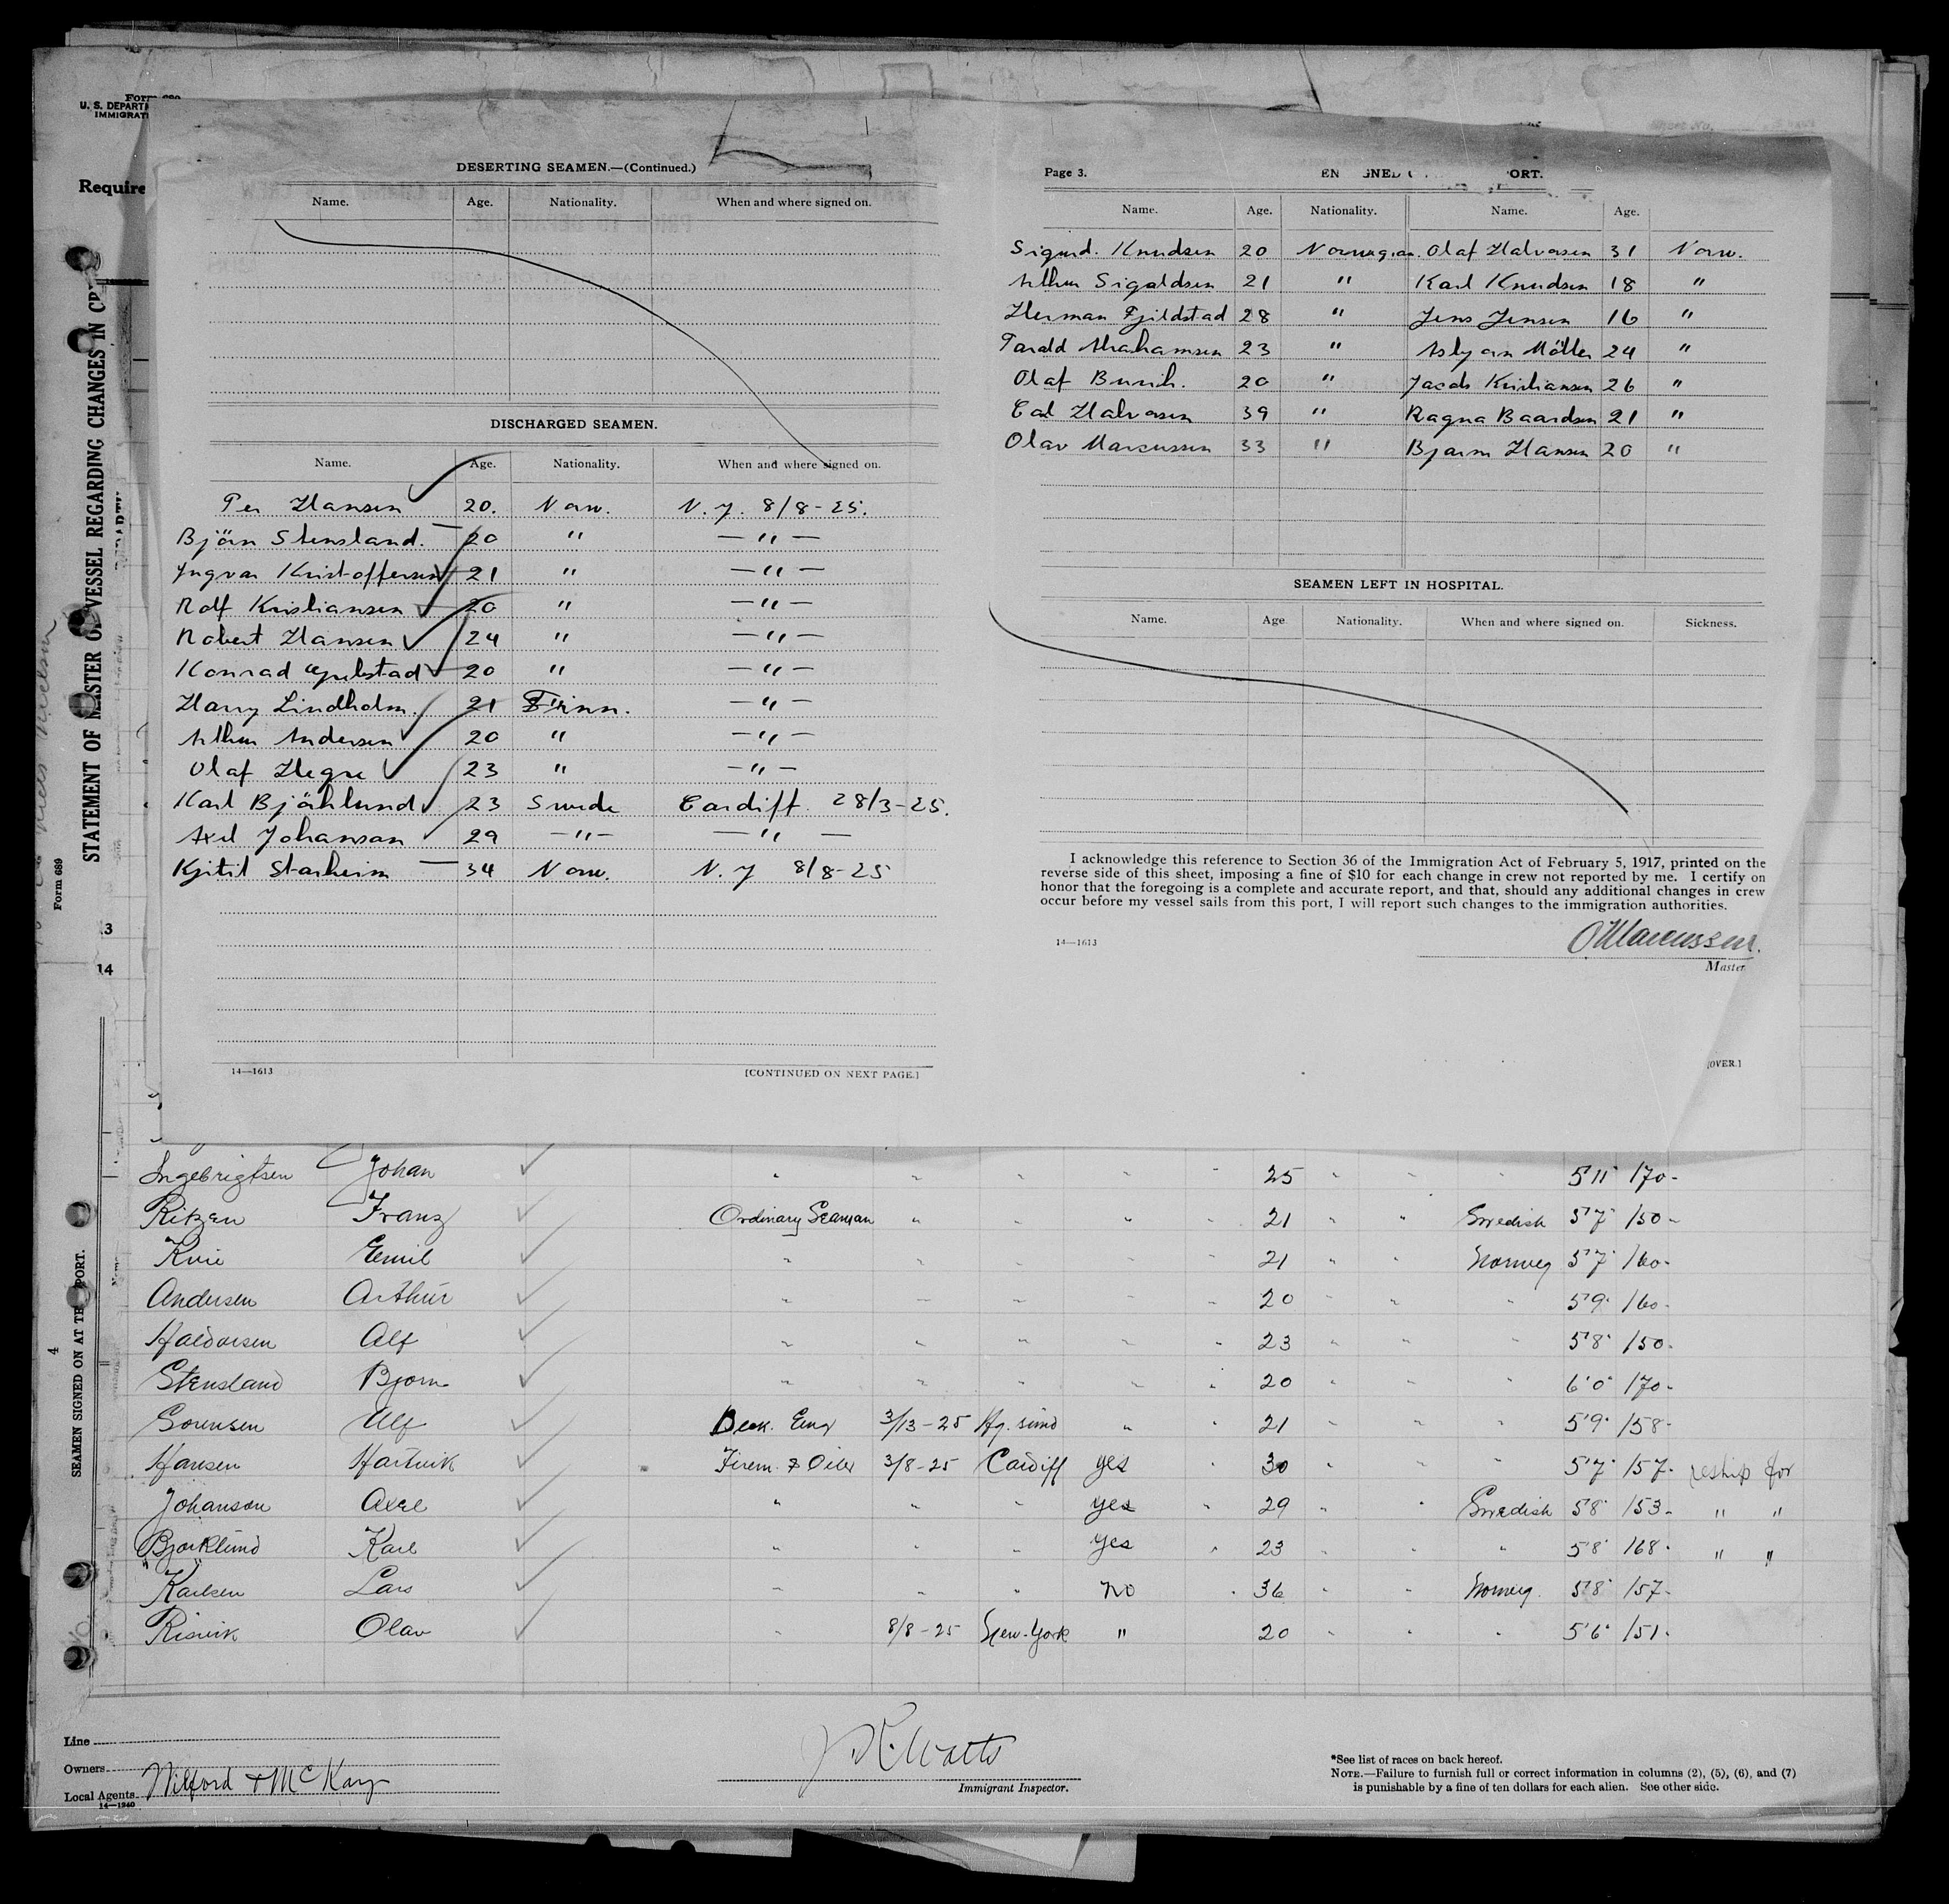 U. S. DEPART
IMMIGRATI
Require
STATEMENT OF MASTER OF VESSEL REGARDING CHANGES IN CR
Form 689
13
14
4
SEAMEN SIGNED ON AT THIS PORT.
DESERTING SEAMEN.—(Continued.)
Name. Age. Nationality. When and where signed on.
DISCHARGED SEAMEN.
Name. Age. Nationality. When and where signed on.
Per Hansen 20. Norw. N. Y. 8/8-25.
Björn Stensland. 20 " — " —
Yngvar Kristoffersen 21 " — " —
Rolf Kristiansen 20 " — " —
Robert Hansen 24 " — " —
Konrad 20 " — " —
Harry Lindholm. 21 Finn. — " —
Arthur Andersen 20 " — " —
Olaf Hegre 23 " — " —
Karl Bjöhlund 23 Swede Cardiff 28/3-25.
Axel Johanson 29 — " — — " —
Kjitil Starheim 34 Norw. N. Y 8/8-25
14—1613 [CONTINUED ON NEXT PAGE.]
Page 3. EN GNED ORT.
Name. Age. Nationality. Name. Age.
Sigurd. Knudsen 20 Norwegian. Olaf Halvorsen 31 Norw.
Arthur Sigaldsen 21 " Karl Knudsen 18 "
Herman Fjildstad 28 " Jens Jensen 16 "
Torald Abrahamsen 23 " Asbjørn Möller 24 "
Olaf 20 " Jacob Kristiansen 26 "
Carl Halvorsen 39 " Ragna Baardsen 21 "
Olav Marcussen 33 " Bjarm Hansen 20 "
SEAMEN LEFT IN HOSPITAL.
Name. Age Nationality. When and where signed on. Sickness.
I acknowledge this reference to Section 36 of the Immigration Act of February 5, 1917, printed on the
reverse side of this sheet, imposing a fine of $10 for each change in crew not reported by me. I certify on
honor that the foregoing is a complete and accurate report, and that, should any additional changes in crew
occur before my vessel sails from this port, I will report such changes to the immigration authorities.
O Marcussen.
14—1613
Master
[OVER.]
Ingebrigtsen Johan " " " " " 25 " " " 5'11" 170-
Ritzen Franz Ordinary Seaman " " " " 21 " " Swedish 5'7" 150-
Kvie Emil " " " " 21 " " Norweg 5'7" 160-
Andersen Arthur " " " " " 20 " " " 5'9" 160-
Haldorsen Alf " " " " " 23 " " " 5'8" 150-
Stensland Bjorn " " " " " 20 " " " 6'0" 170-
Sorensen Alf Deck. Eng 3/13-25 " " 21 " " " 5'9" 158-
Hansen Hartvik Firem. & Oiler 3/8-25 Cardiff yes " 30 " " " 5'7" 157- reship for
Johanson Axel " " " yes " 29 " " Swedish 5'8" 153- " "
Bjorklund Karl " " " yes " 23 " " " 5'8" 168- " "
Karlsen Lars " " " no " 36 " " Norweg. 5'8" 157-
Risvik Olav " 8/8-25 New-York " 20 " " " 5'6" 151-
Line
Owners
Local Agents. Wilford & McKay
14—1240
Watts
Immigrant Inspector.
*See list of races on back hereof.
NOTE.—Failure to furnish full or correct information in columns (2), (5), (6), and (7)
is punishable by a fine of ten dollars for each alien. See other side.